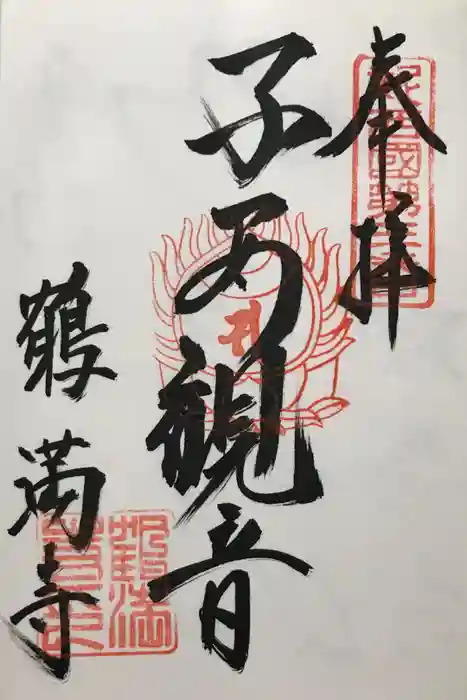 奉拝
子安観音
鶴満寺